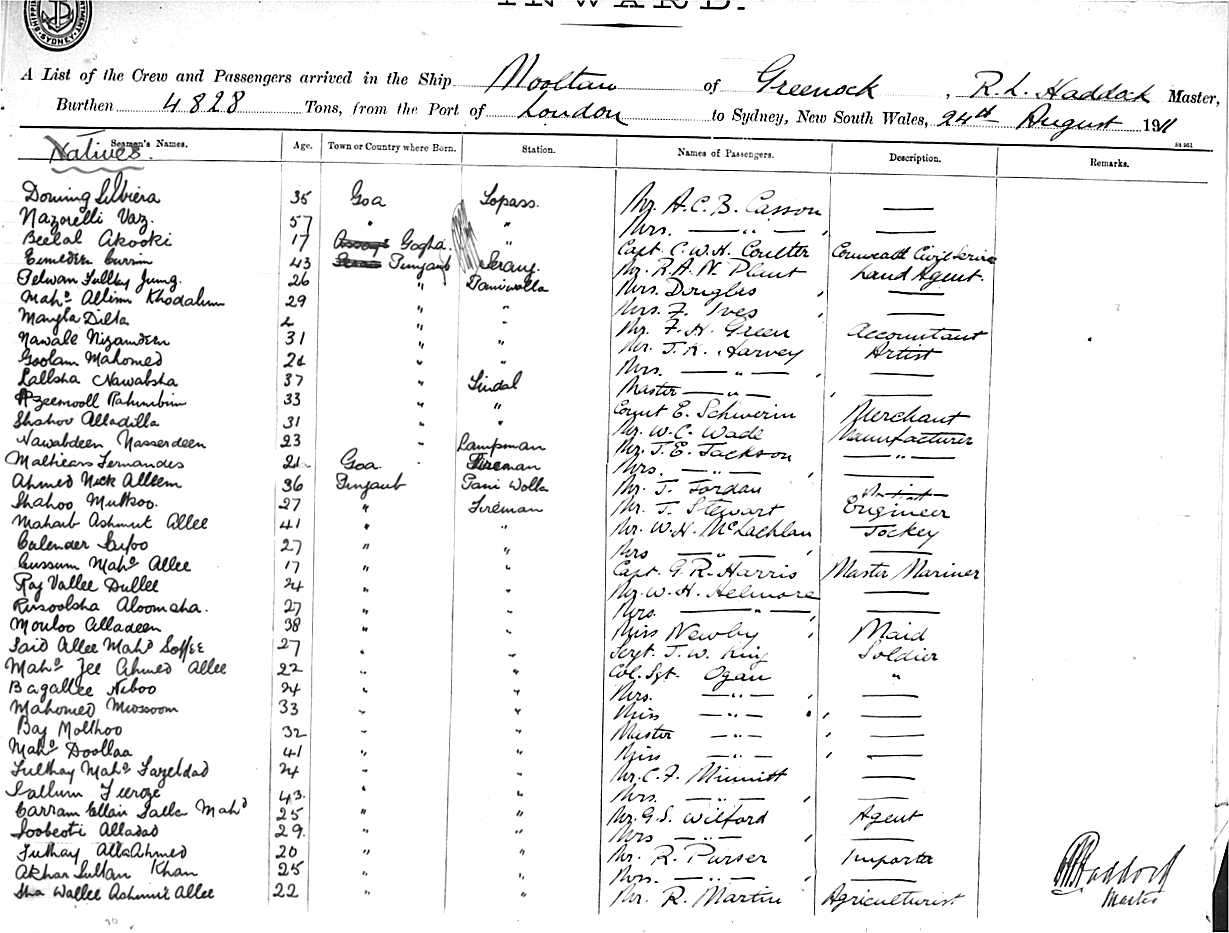 INWARD.
A List of the Crew and Passengers arrived in the Ship Mooltan of Greenock, R. L. Haddock Master,
Burthen 4828 Tons, from the Port of London to Sydney, New South Wales, 24th August 1911
Seamen's Names. Age. Town or Country where Born. Station. Names of Passengers. Description. Remarks.
Natives.
35 Goa Topass. Mr. A. C. B. Casson —
Nazorelli Vaz. 57 " " Mrs. — " —, —
Beelal Akooki 17 Gogha. " Capt. C. W. H. Coulter Comweath Civil Service
43 Punjaub Serang. Mr. R. A. N. Plant Land Agent.
26 " Paniwalla Mrs. Douglas, —
Mahd. Allim Khodabux 29 " " Mrs. F. Ives, —
Mangla Ditta " " Mr. F. H. Green Accountant
Nawale Nizamdeen 31 " " Mr. J. K. Harvey Artist
Goolam Mahomed " " Mrs. — " —, —
Lallsha Nawabsha 37 " Tindal Master — " —, —
33 " " Count E. Schwerin Merchant
Alladitta 31 " " Mr. W. C. Wade Manufacturer
Nawabdeen Nasserdeen 23 " Lampman Mr. J. E. Jackson — " —
Fernandes Goa Fireman Mrs. — " —, —
Ahmed Alleem 36 Punjaub Pani Wolla Mr. J. Jordan
Shahoo Muttroo. 27 " Fireman Mr. J. Stewart Engineer
Ashmut Allee 41 " " Mr. W. H. McLachlan Jockey
Calender 27 " " Mrs — " —, —
Cussum Mahd. Allee 17 " " Capt. G. R. Harris Master Mariner
Raj Vallee Dullee 24 " " Mr. W. H. Helmore —
Rusoolsha Aloomsha. 27 " " Mrs. — " —, —
Mouloo Alladeen 38 " " Miss Newby, Maid
Said Allee Mahd. Soffee 27 " " Sergt. J. W. King Soldier
Mahd. Jee Ahmed Allee 22 " " Col. Sgt. Ogan "
Bagallee Neboo 24 " " Mrs. — " —, —
Mahomed 33 " " Miss — " —, —
Baj Molkhoo 32 " " Master — " —, —
Mahd. Doollaa 41 " " Miss — " —, —
Futthay Mahd. Fazeldad 24 " " Mr. C. F. Minnitt —
Feeroze 43. " " Mrs. — " —, —
Carram Mahd 25 " " Mr. G. S. Wilford, Agent
Alladad 29. " " Mrs — " —, —
Futhay Alla Ahmed 20 " " Mr. R. Purser Importer
Akbar Sultan Khan 25 " " Mrs. — " —, —
Sha Wallee Ashmut Allee 22 " " Mr. R. Martin Agriculturist
R L Haddock
Master